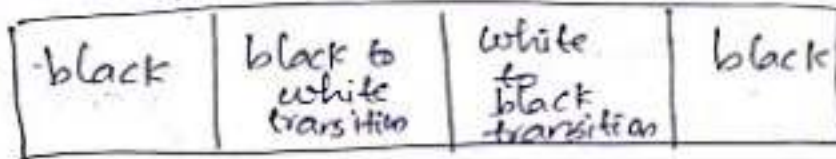 black
black to
white
transition
white
to
black
transition
black